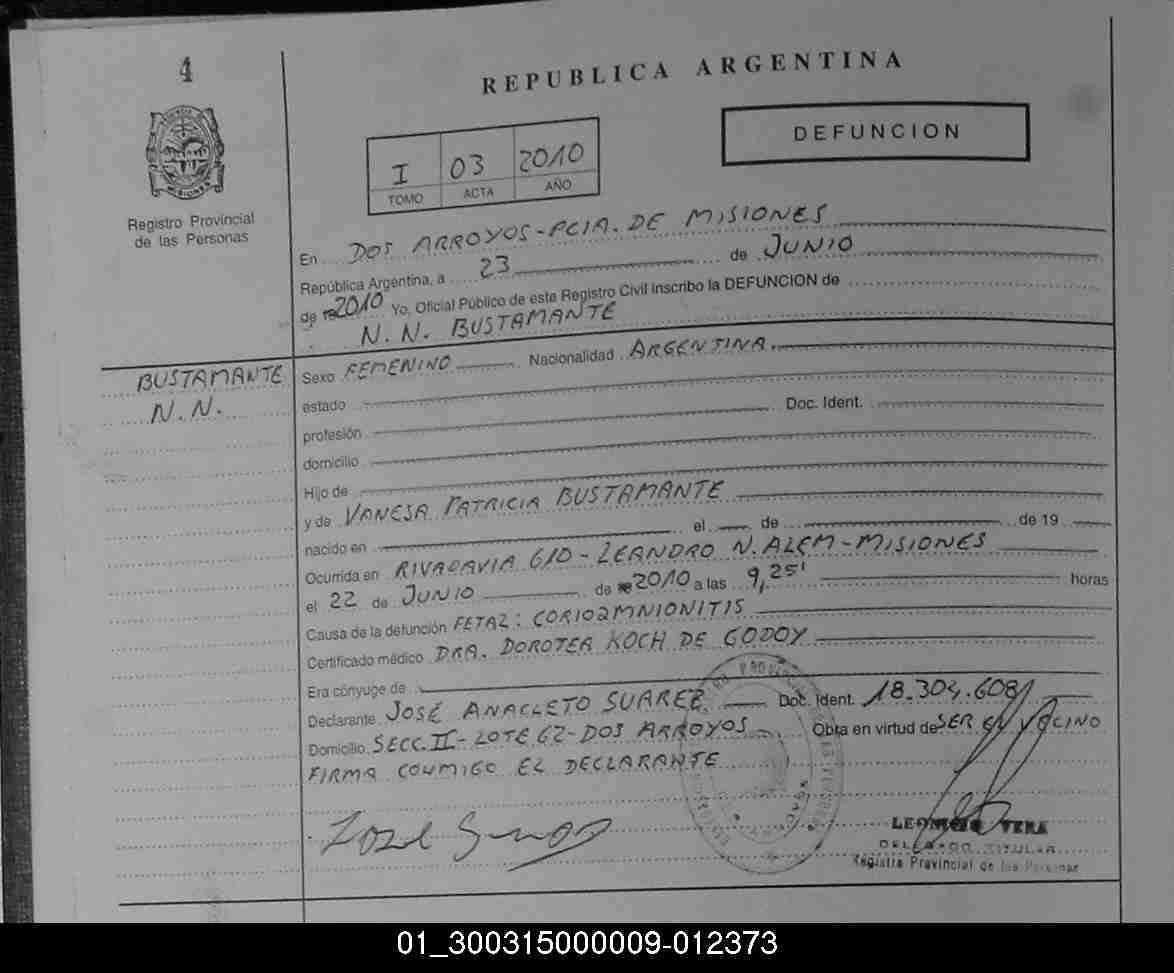 4
REPUBLICA ARGENTINA
DEFUNCION
I 03 2010
TOMO ACTA AÑO
Registro Provincial
de las Personas
En DOS ARROYOS-PCIA. DE MISIONES
República Argentina, a 23 de JUNIO
de 2010 Yo, Oficial Público de este Registro Civil inscribo la DEFUNCION de
N. N. BUSTAMANTE
BUSTAMANTE
N. N.
Sexo FEMENINO Nacionalidad ARGENTINA.
estado
profesión Doc. Ident.
domicilio
Hijo de
y de VANESA PATRICIA BUSTAMANTE
nacido en el de de 19
Ocurrida en RIVADAVIA 610 - LEANDRO N. ALEM - MISIONES
el 22 de JUNIO de 2010 a las 9,25' horas
Causa de la defunción FETAL: CORIOAMNIONITIS
Certificado médico DRA. DOROTEA KOCH DE GODOY
Era cónyuge de
Declarante JOSÉ ANACLETO SUAREZ Doc. Ident. 18.304.608
Domicilio SECC. II - LOTE 62 - DOS ARROYOS Obra en virtud de SER EN VECINO
FIRMA CONMIGO EL DECLARANTE
LEONCIO VERA
DELEGADO TITULAR
Registro Provincial de las Personas
01_300315000009-012373